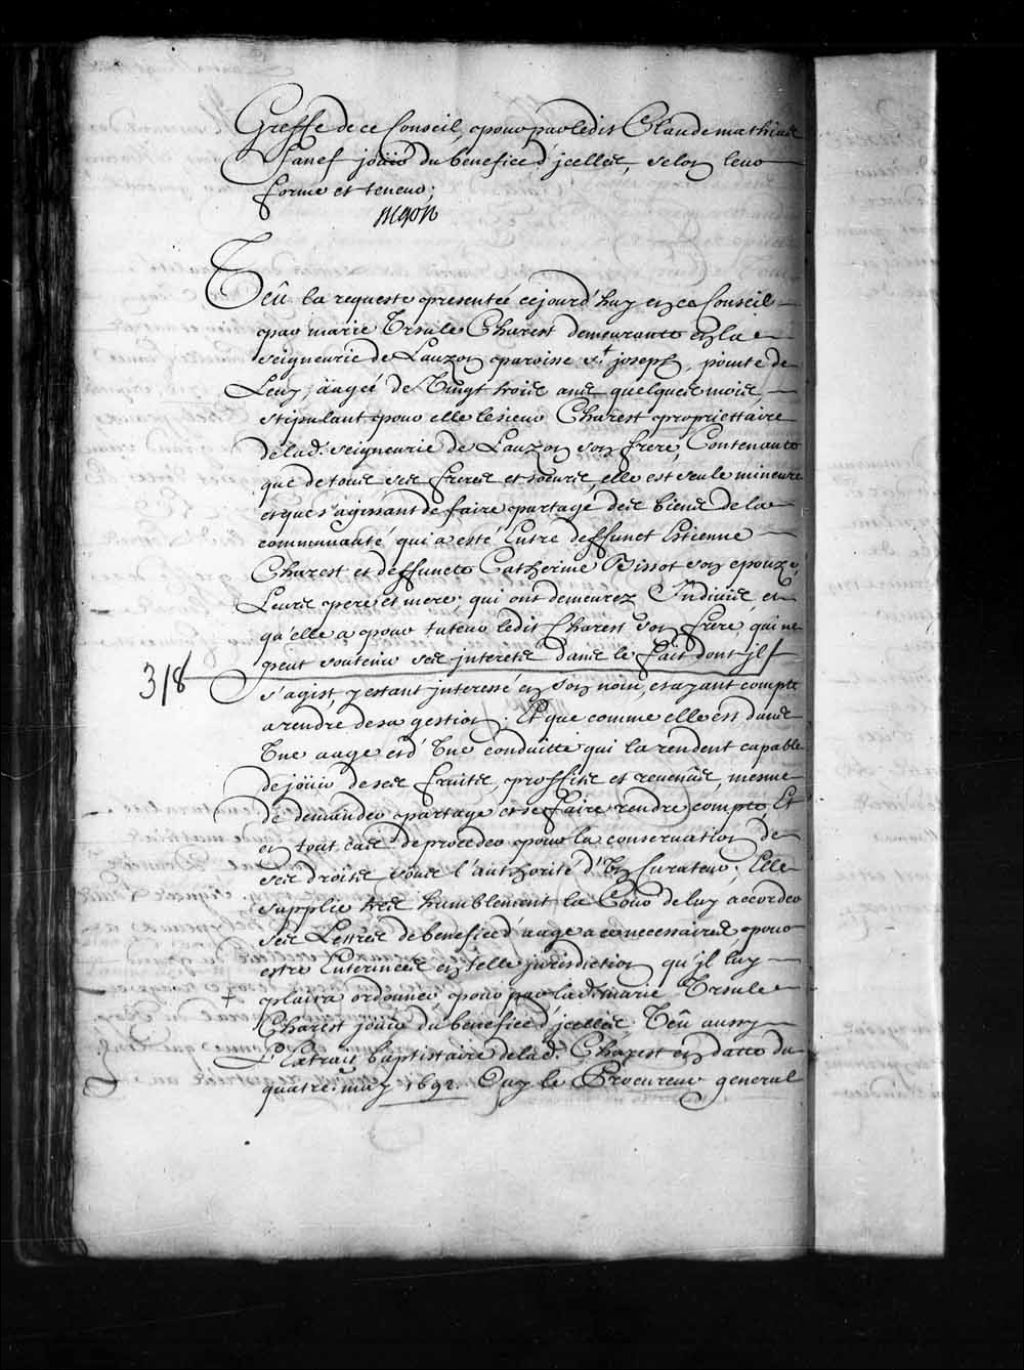 Greffe de ce Conseil, pour par ledit Claude mathieu
Sanef jouir du benefice d'jcelles, selon leur
forme et teneur;
Begon
Veû la requeste presentée cejourd'huy en ce Conseil
par marie Ursule Charest demeurante en la
Seigneurie de Lauzon paroisse St. joseph, pointe de
Levy, aagée de Vingt trois ans quelques mois,
stipulant pour elle le sieur Charest proprietaire
de lad. seigneurie de Lauzon son frere, Contenante
que de tous ses freres et soeurs, elle est seule mineure
et que s'agissant de faire partage des biens de la
communauté qui a esté Entre deffunct Estienne
Charest et deffuncte Catherine Bissot son epouze,
Leurs pere et mere, qui ont demeurez Indivis, et
qu'elle a pour tuteur ledit Charest son frere, qui ne
peut soutenir ses interets dans le fait dont jl
318
s'agist, y estant jnteressé en son nom, et ayant compte
a rendre de sa gestion. Et que comme elle est dans
Vne aage et d'Vne conduitte qui la rendent capable
de jouir de ses fruits, proffits et revenûs, mesme
de demander partage et se faire rendre compte, Et
en tout cas de proceder pour la conservation de
ses droits sous l'authorité d'Vn Curateur; Elle
supplie tres humblement la Cour de luy accorder
ses Lettres de benefice d'aage a ce necessaires pour
estre Enterinées en telle jurisdiction qu'jl luy
plaira ordonner pour par lad. marie Ursule
Charest jouir du benefice d'jcelles. Veû aussy
L'Extrait baptistaire de lad. Charest en datte du
quatre may 1692. Ouy le Procureur general